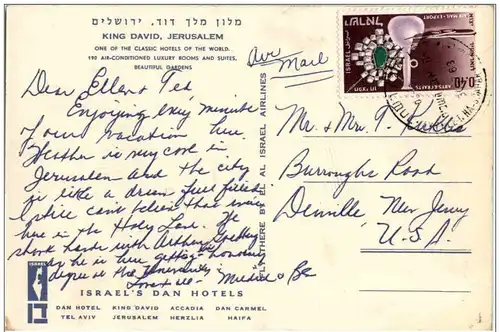 מלון מלך דוד, ירושלים
KING DAVID, JERUSALEM
ONE OF THE CLASSIC HOTELS OF THE WORLD...
190 AIR-CONDITIONED LUXURY ROOMS AND SUITES,
BEAUTIFUL GARDENS
Dear Ellen & Ted
Enjoying every minute
of our vacation here.
Weather is very cool in
Jerusalem and the city
is like a dream
I still can't believe that we're
here in the Holy Land. We
shook hands with Arthur
he is here getting honorary
degree at the University.
Love to all - &
FLY THERE BY EL AL ISRAEL AIRLINES
Air Mail
ישראל ISRAEL
AIR MAIL · EXPORT
ARTS·CRAFTS
0.40
Mr. & Mrs. T.
Burroughs Road
Denville New Jersey
U.S.A.
ISRAEL
דן
ISRAEL'S DAN HOTELS
DAN HOTEL KING DAVID ACCADIA DAN CARMEL
TEL AVIV JERUSALEM HERZLIA HAIFA